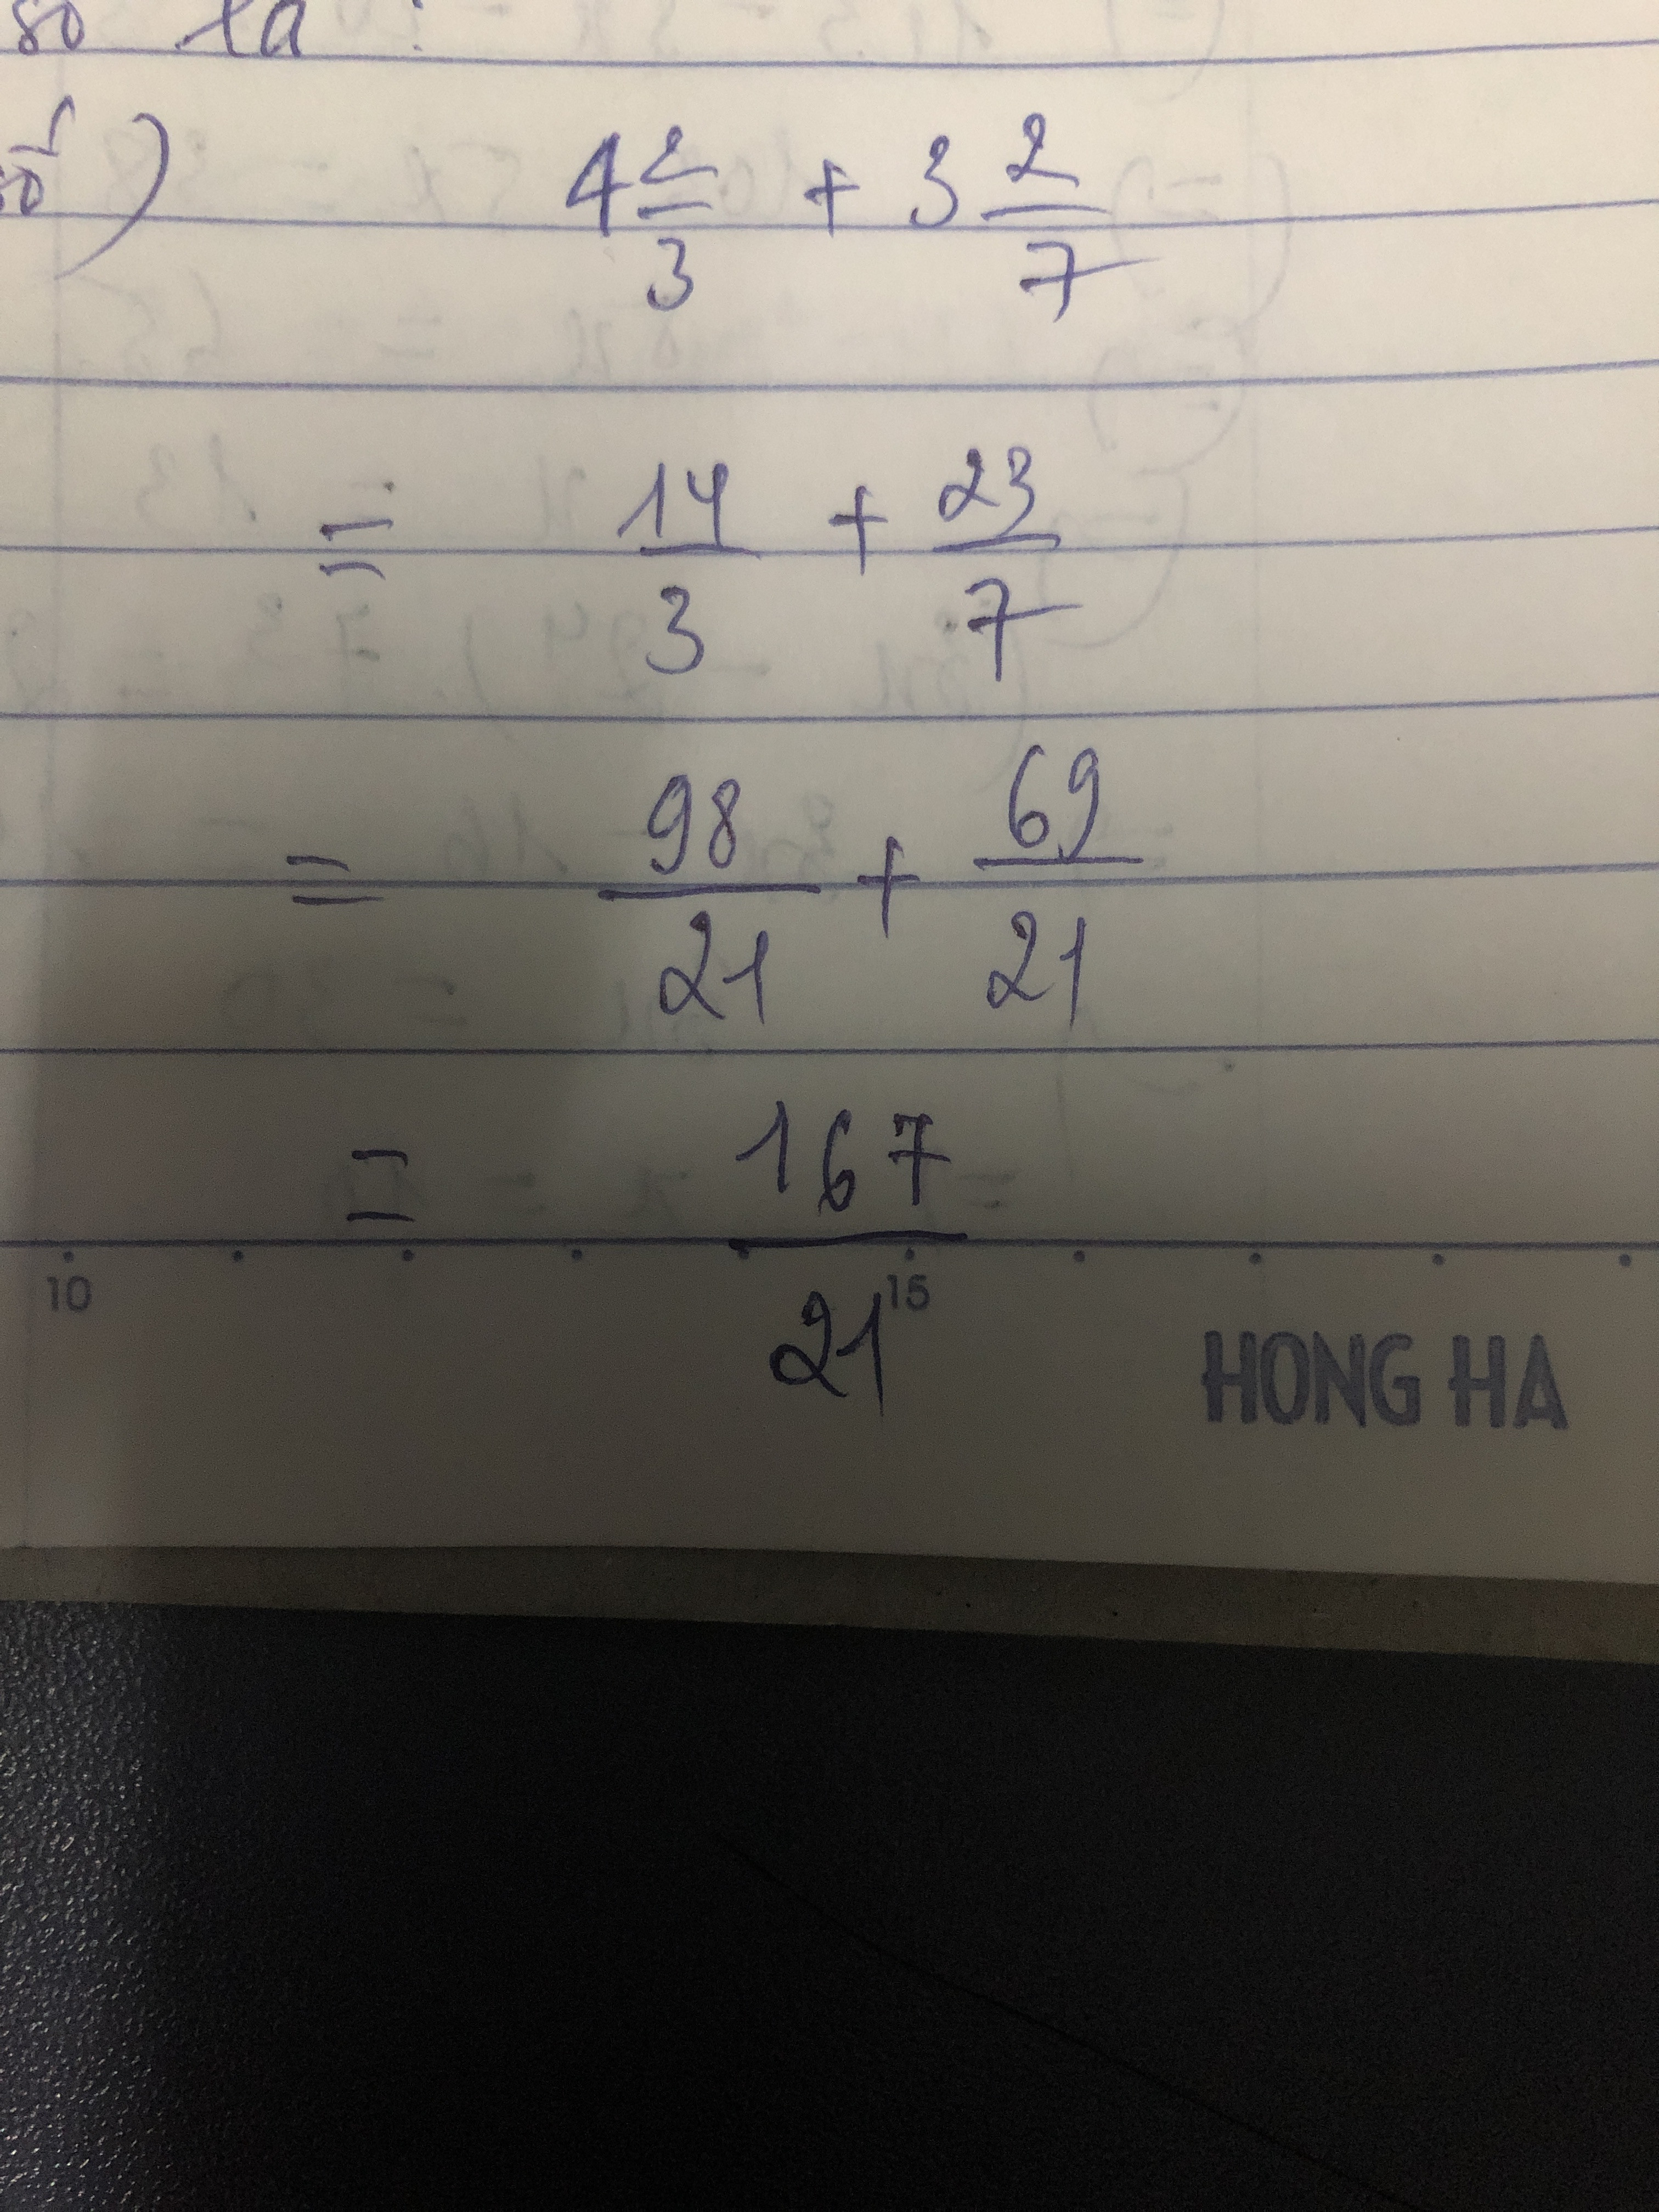 số ta :
số)
4 2/3 + 3 2/7
= 14/3 + 23/7
= 98/21 + 69/21
= 167/21
10 15
HONG HA